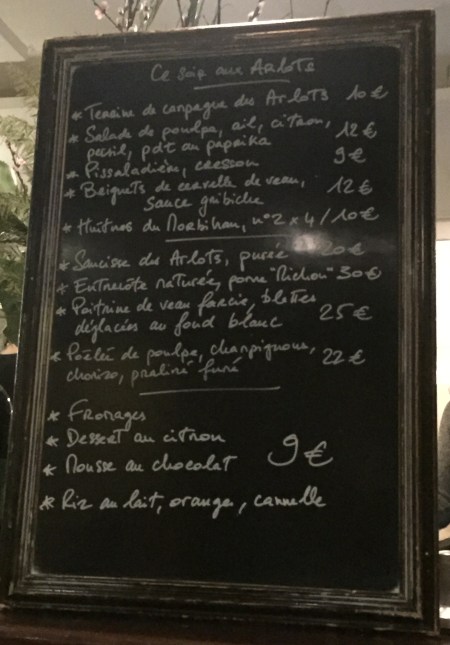 Ce soir aux Arlots
* Terrine de campagne des Arlots 10€
* Salade de poulpe, ail, citron,
persil, pdt au paprika 12€
* Pissaladière, cresson 9€
* Beignets de cervelle de veau,
sauce gribiche 12€
* Huîtres du Morbihan, n°2 x 4 / 10€
* Saucisse des Arlots, purée 20€
* Entrecôte maturée, pomme "Richou" 30€
* Poitrine de veau farcie, blettes
déglacées au fond blanc 25€
* Poêlée de poulpe, champignons,
chorizo, praliné fumé 22€
* Fromages
* Dessert au citron
* Mousse au chocolat 9€
* Riz au lait, orange, cannelle